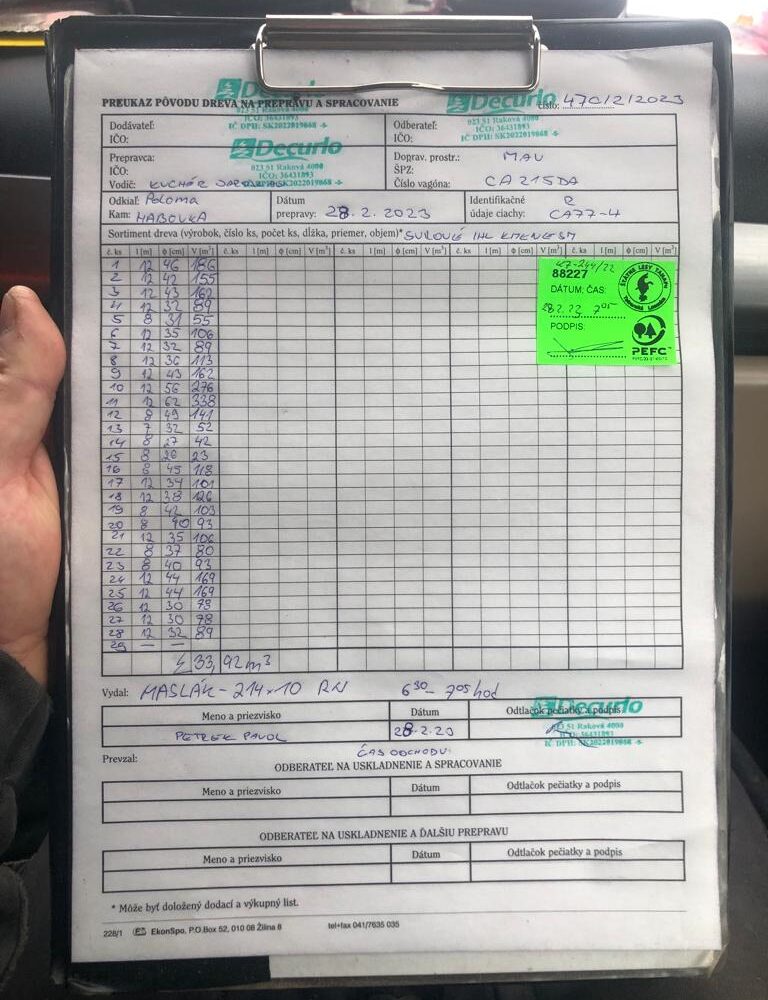 Decurlo
023 51 Raková 4000
IČO: 36431893
IČ DPH: SK2022019868 -5-
PREUKAZ PÔVODU DREVA NA PREPRAVU A SPRACOVANIE
Číslo: 470/2/2023
Decurlo
023 51 Raková 4000
IČO: 36431893
IČ DPH: SK2022019868 -5-
Dodávateľ:
IČO:
Odberateľ:
IČO:
Decurlo
023 51 Raková 4000
IČO: 36431893
IČ DPH: SK2022019868 -5-
Prepravca:
IČO:
Vodič: KUCHÁR
Doprav. prostr.: MAN
ŠPZ:
Číslo vagóna: CA215DA
Odkiaľ: Poloma
Kam: HABOVKA
Dátum
prepravy: 28. 2. 2023
Identifikačné
údaje ciachy: CA77-4
Sortiment dreva (výrobok, číslo ks, počet ks, dĺžka, priemer, objem)* SUROVÉ IHL KMENE SM
č. ks l [m] ϕ [cm] V [m³] č. ks l [m] ϕ [cm] V [m³] č. ks l [m] ϕ [cm] V [m³] č. ks l [m] ϕ [cm] V [m³] č. ks l [m] ϕ [cm] V [m³]
1 12 46 186
2 12 42 155
3 12 43 162
4 12 32 89
5 8 31 55
6 12 35 106
7 12 32 89
8 12 36 113
9 12 43 162
10 12 56 276
11 12 62 338
12 8 49 141
13 7 32 52
14 8 27 42
15 8 20 23
16 8 45 118
17 12 34 101
18 12 38 126
19 8 42 103
20 8 40 93
21 12 35 106
22 8 37 80
23 8 40 93
24 12 44 169
25 12 44 169
26 12 30 78
27 12 30 78
28 12 32 89
29 — —
Σ 33,92 m³
88227
DÁTUM: ČAS:
28.2.23 7⁰⁵
PODPIS:
ŠTÁTNE LESY TANAPU
Tatranská Lomnica
PEFC
Vydal: MASLÁK - 214x10 RN 6³⁰ - 7⁰⁵ hod
Meno a priezvisko Dátum Odtlačok pečiatky a podpis
PETREK PAVOL 28.2.23
Decurlo
023 51 Raková 4000
IČO: 36431893
IČ DPH: SK2022019868 -5-
Prevzal:
ČAS ODCHODU
ODBERATEĽ NA USKLADNENIE A SPRACOVANIE
Meno a priezvisko Dátum Odtlačok pečiatky a podpis
ODBERATEĽ NA USKLADNENIE A ĎALŠIU PREPRAVU
Meno a priezvisko Dátum Odtlačok pečiatky a podpis
* Môže byť doložený dodací a výkupný list.
228/1 EkonSpo, P.O.Box 52, 010 08 Žilina 8 tel+fax 041/7635 035